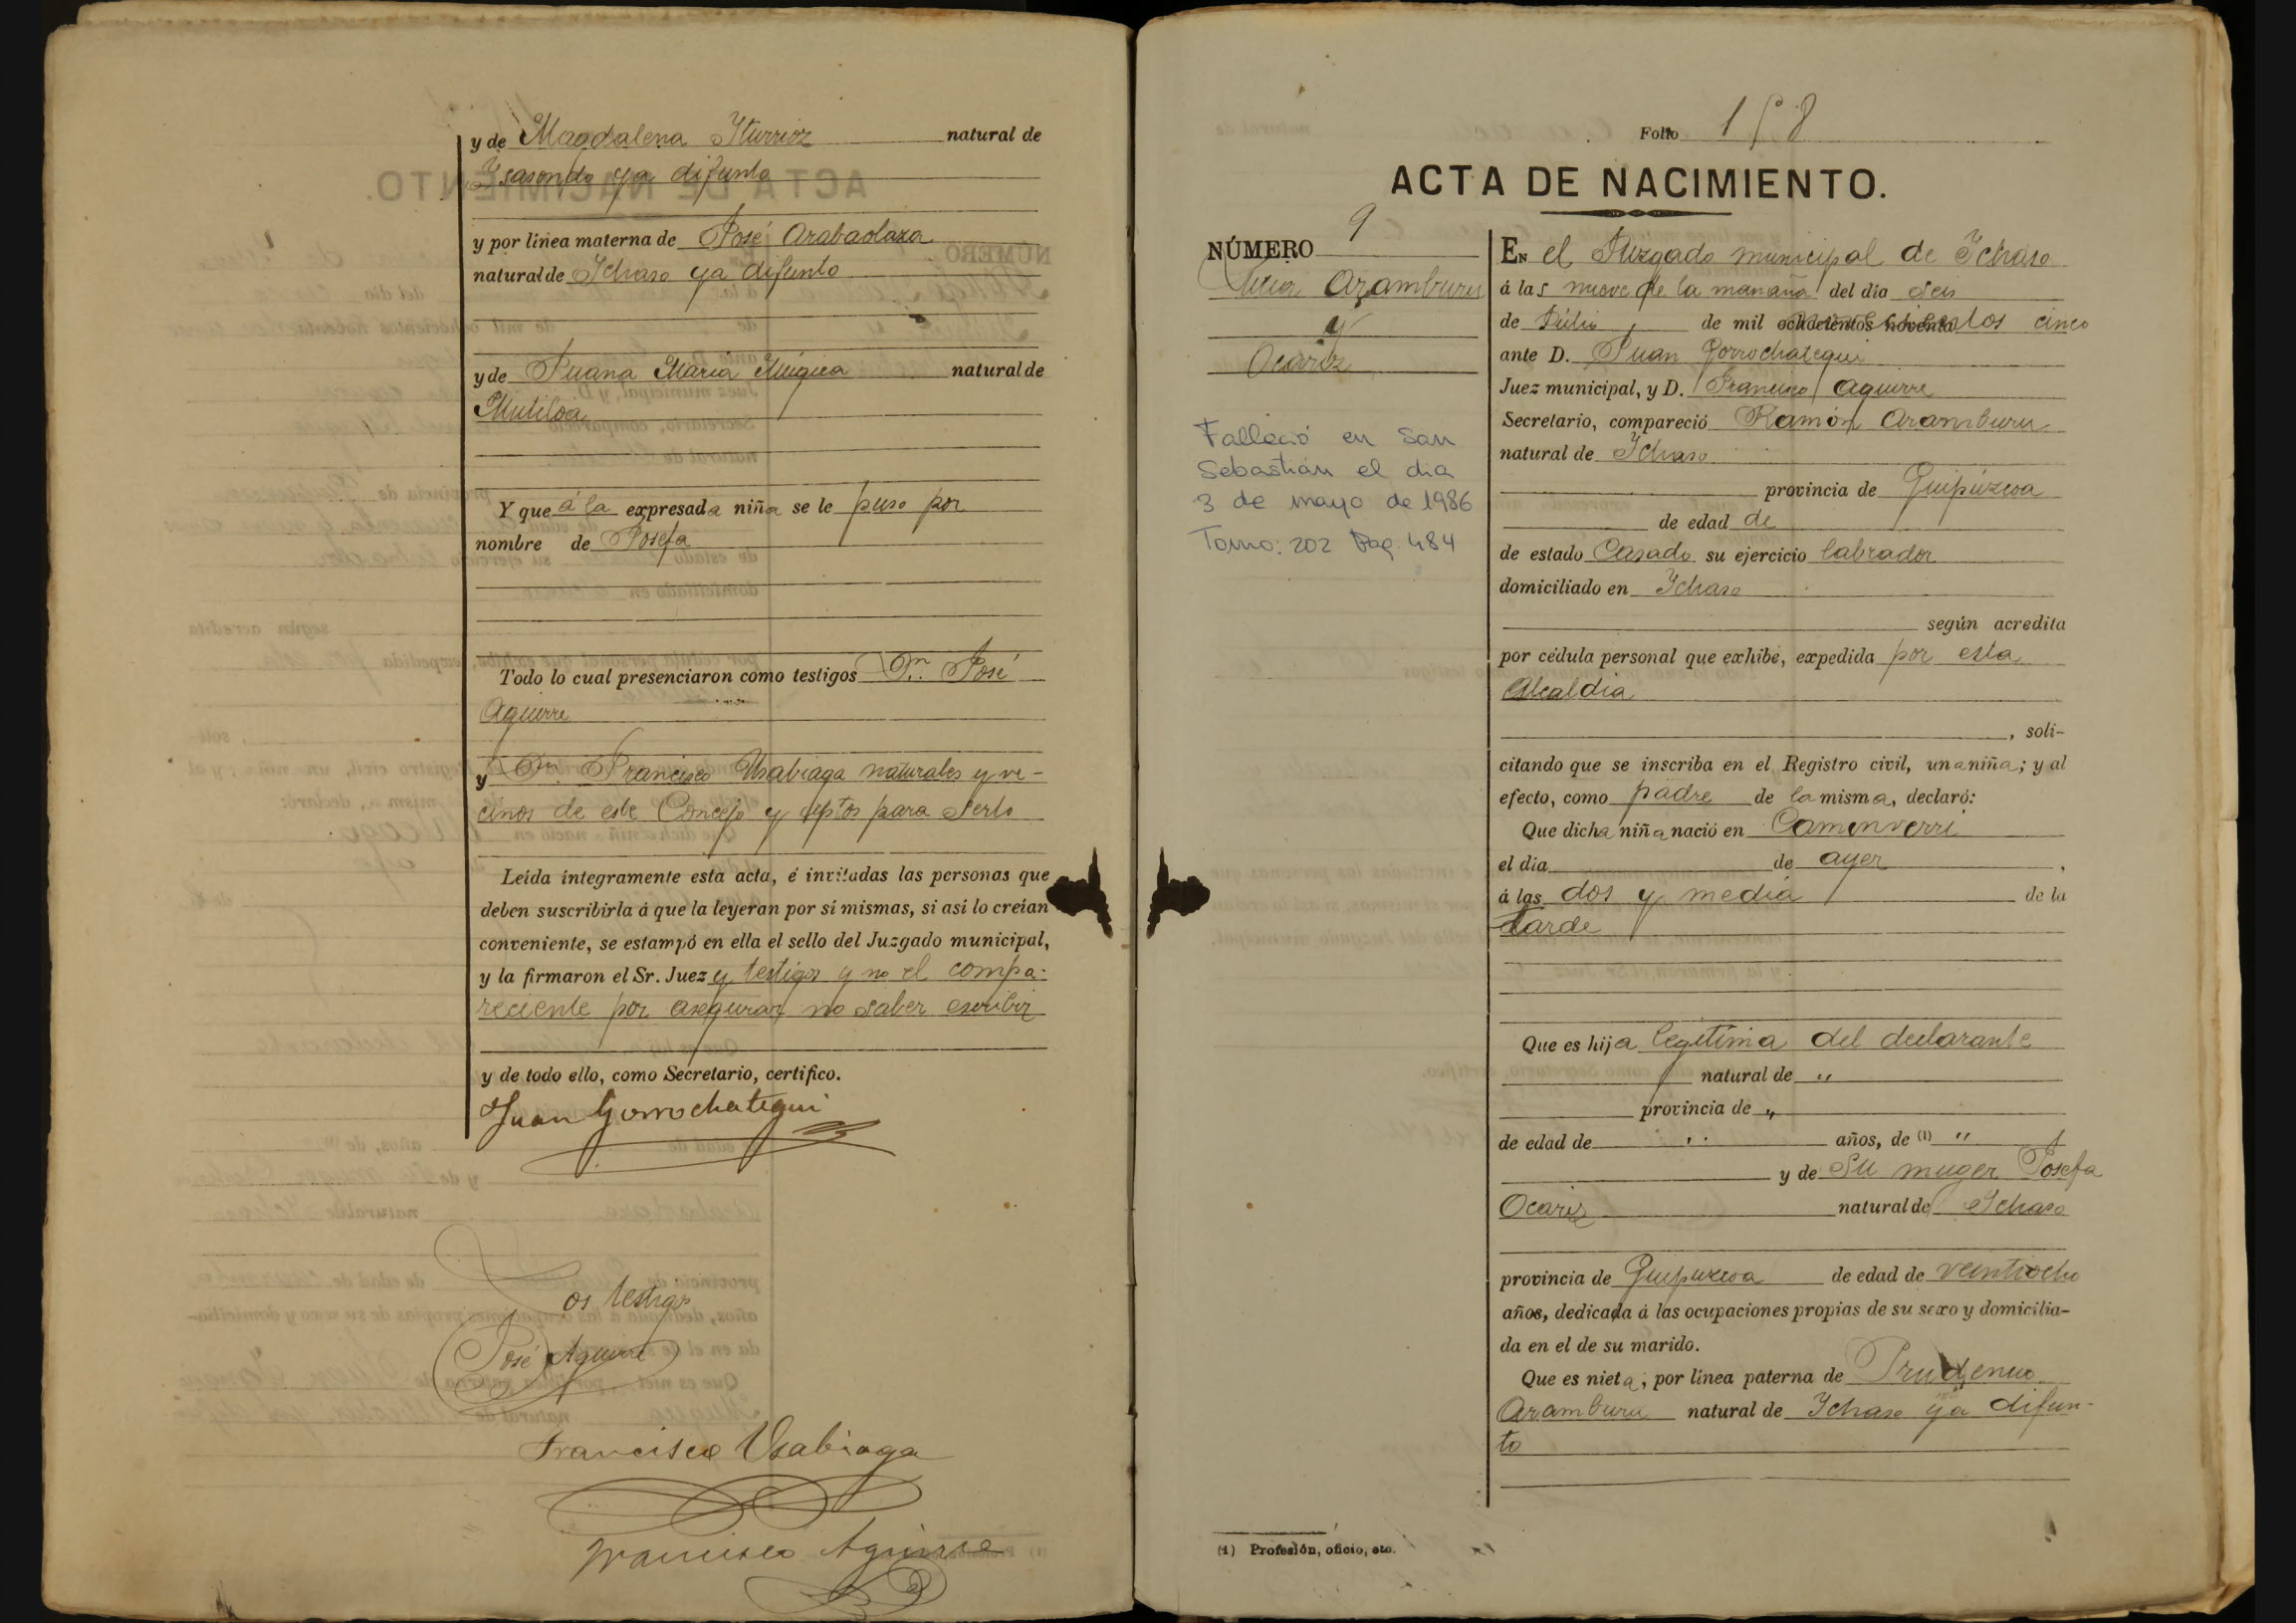 y de Magdalena Yturrioz natural de
Ysasondo ya difunta
y por línea materna de José Arabaolaza
natural de Ichaso ya difunto
y de Juana María Múgica natural de
Mutiloa
Y que á la expresada niña se le puso por
nombre de Josefa
Todo lo cual presenciaron como testigos Dn. José
Aguirre
y Dn. Francisco Usabiaga naturales y ve-
cinos de este Concejo y aptos para serlo
Leída íntegramente esta acta, é invitadas las personas que
deben suscribirla á que la leyeran por sí mismas, si así lo creían
conveniente, se estampó en ella el sello del Juzgado municipal,
y la firmaron el Sr. Juez y testigos y no el compa-
reciente por asegurar no saber escribir
y de todo ello, como Secretario, certifico.
Juan Gorrochategui
Los testigos
José Aguirre
Francisco Usabiaga
Francisco Aguirre
Folio 158
ACTA DE NACIMIENTO.
NÚMERO 9
Aramburu
y
Ocariz
Falleció en San
Sebastián el dia
3 de mayo de 1986
Tomo: 202 Pag. 484
EN el Juzgado municipal de Ichaso
á las nueve de la mañana del día seis
de Júlio de mil novecientos cinco
ante D. Juan Gorrochategui
Juez municipal, y D. Francisco Aguirre
Secretario, compareció Ramón Aramburu
natural de Ichaso
provincia de Guipúzcoa
de edad de
de estado Casado su ejercicio labrador
domiciliado en Ichaso
según acredita
por cédula personal que exhibe, expedida por esta
Alcaldia
, soli-
citando que se inscriba en el Registro civil, una niña; y al
efecto, como padre de la misma, declaró:
Que dicha niña nació en Camenverri
el día de ayer,
á las dos y media de la
tarde
Que es hija legítima del declarante
natural de "
provincia de "
de edad de " años, de (1) "
y de su muger Josefa
Ocariz natural de Ichaso
provincia de Guipuzcoa de edad de veintiocho
años, dedicada á las ocupaciones propias de su sexo y domicilia-
da en el de su marido.
Que es nieta, por línea paterna de Prudencio
Aramburu natural de Ichaso ya difun-
to
(1) Profesión, oficio, etc.